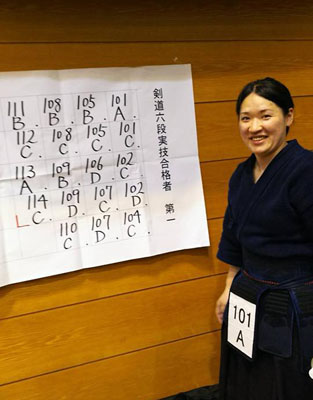 剣道六段実技合格者 第一
101
A.
101
C.
102
C.
102
D.
104
C.
105
B.
105
C.
106
D.
107
C.
107
D.
108
B.
108
C.
109
B.
109
D.
110
C.
111
B.
112
C.
113
A.
114
C.
101
A